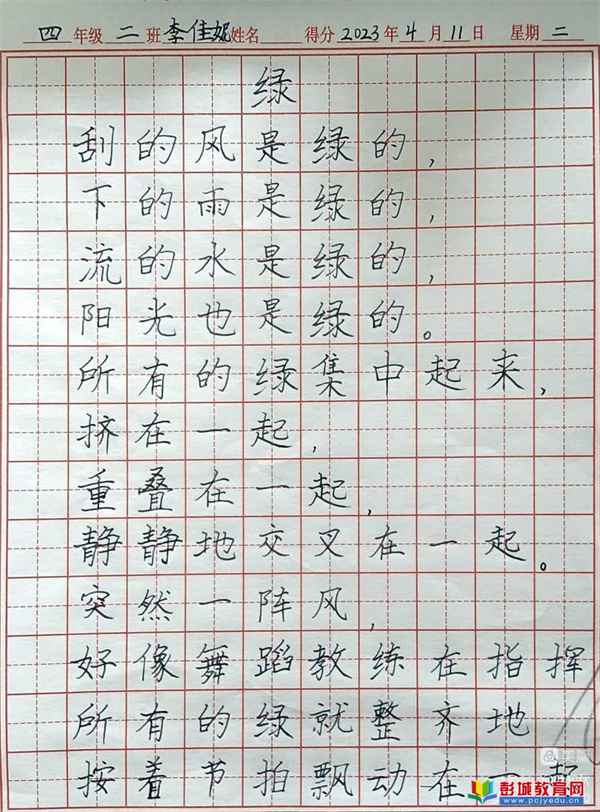 四年级二班李佳妮姓名 得分2023年4月11日 星期二
绿
刮的风是绿的，
下的雨是绿的，
流的水是绿的，
阳光也是绿的。
所有的绿集中起来，
挤在一起，
重叠在一起，
静静地交叉在一起。
突然一阵风，
好像舞蹈教练在指挥
所有的绿就整齐地
按着节拍飘动在一起
美篇
彭城教育网
www.pcjyedu.cn